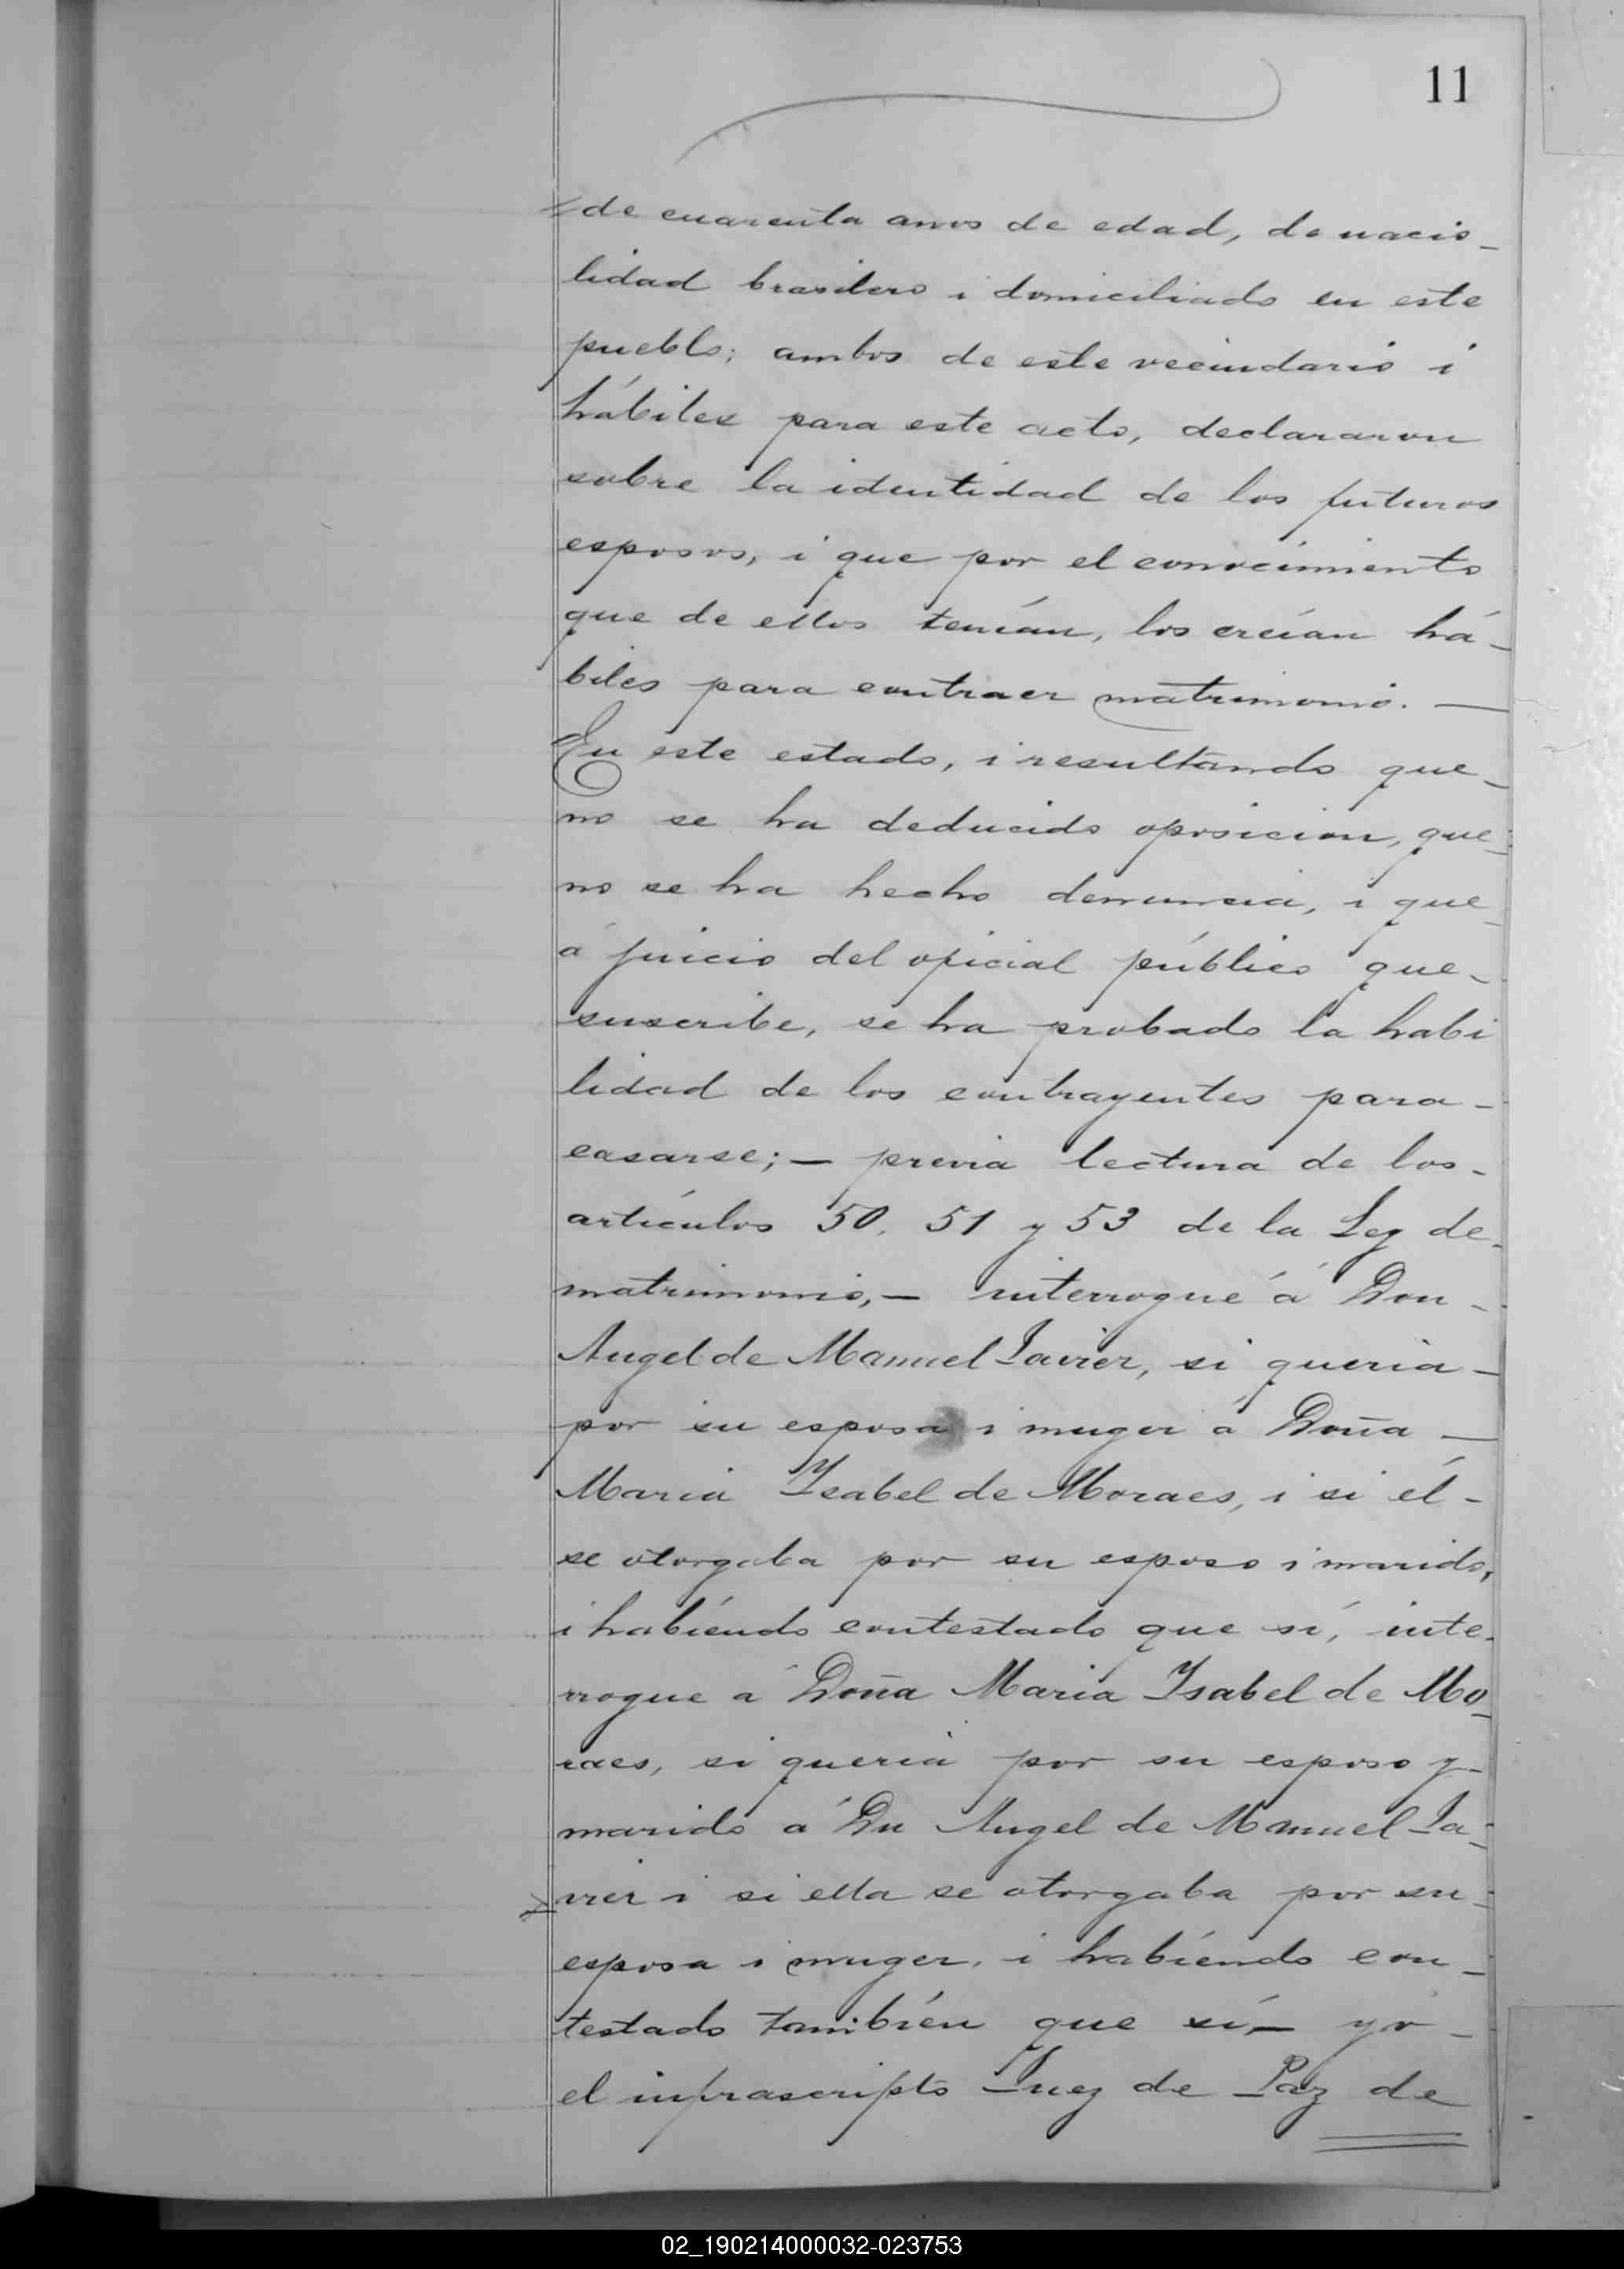 11
de cuarenta anos de edad, de nacio-
lidad brasilero i domiciliado en este
pueblo; ambos de este vecindario i
hábiles para este acto, declararon
sobre la identidad de los futuros
esposos, i que por el conocimiento
que de ellos tenían, los creían há-
biles para contraer matrimonio. —
En este estado, i resultando que-
no se ha deducido oposicion, que-
no se ha hecho denuncia, i que-
á juicio del oficial público que-
suscribe, se ha probado la habi
lidad de los contrayentes para-
casarse; — previa lectura de los-
artículos 50, 51 y 53 de la Ley de-
matrimonio, — interrogué á Don-
Angel de Manuel Javier, si queria-
por su esposa i muger á Doña —
Maria Ysabel de Moraes, i si él-
se otorgaba por su esposo i marido,
i habiendo contestado que sí, inte-
rrogue á Doña Maria Ysabel de Mo-
raes, si queria por su esposo y-
marido á Dn Angel de Manuel Ja-
vier i si ella se otorgaba por su-
esposa i muger, i habiendo con-
testado también que sí — yo-
el infrascripto Juez de Paz de
02_190214000032-023753